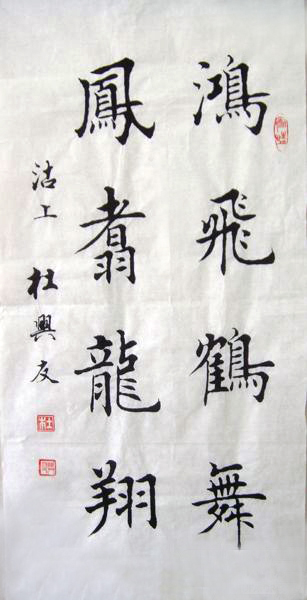 鴻飛鶴舞
鳳翥龍翔
沽上 杜興友